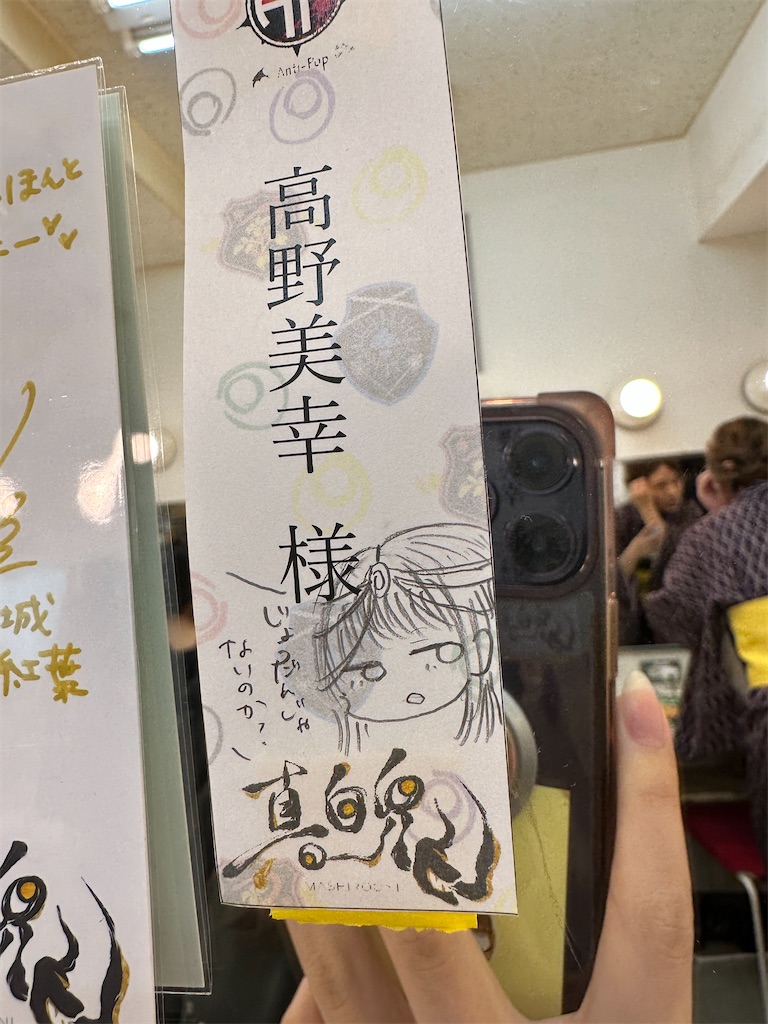 Anti-Pop
高野美幸 様
じょうだんじゃ
ないのか?
真白鬼
MASHIROONI
ほんと
ニー
城
紅葉
鬼